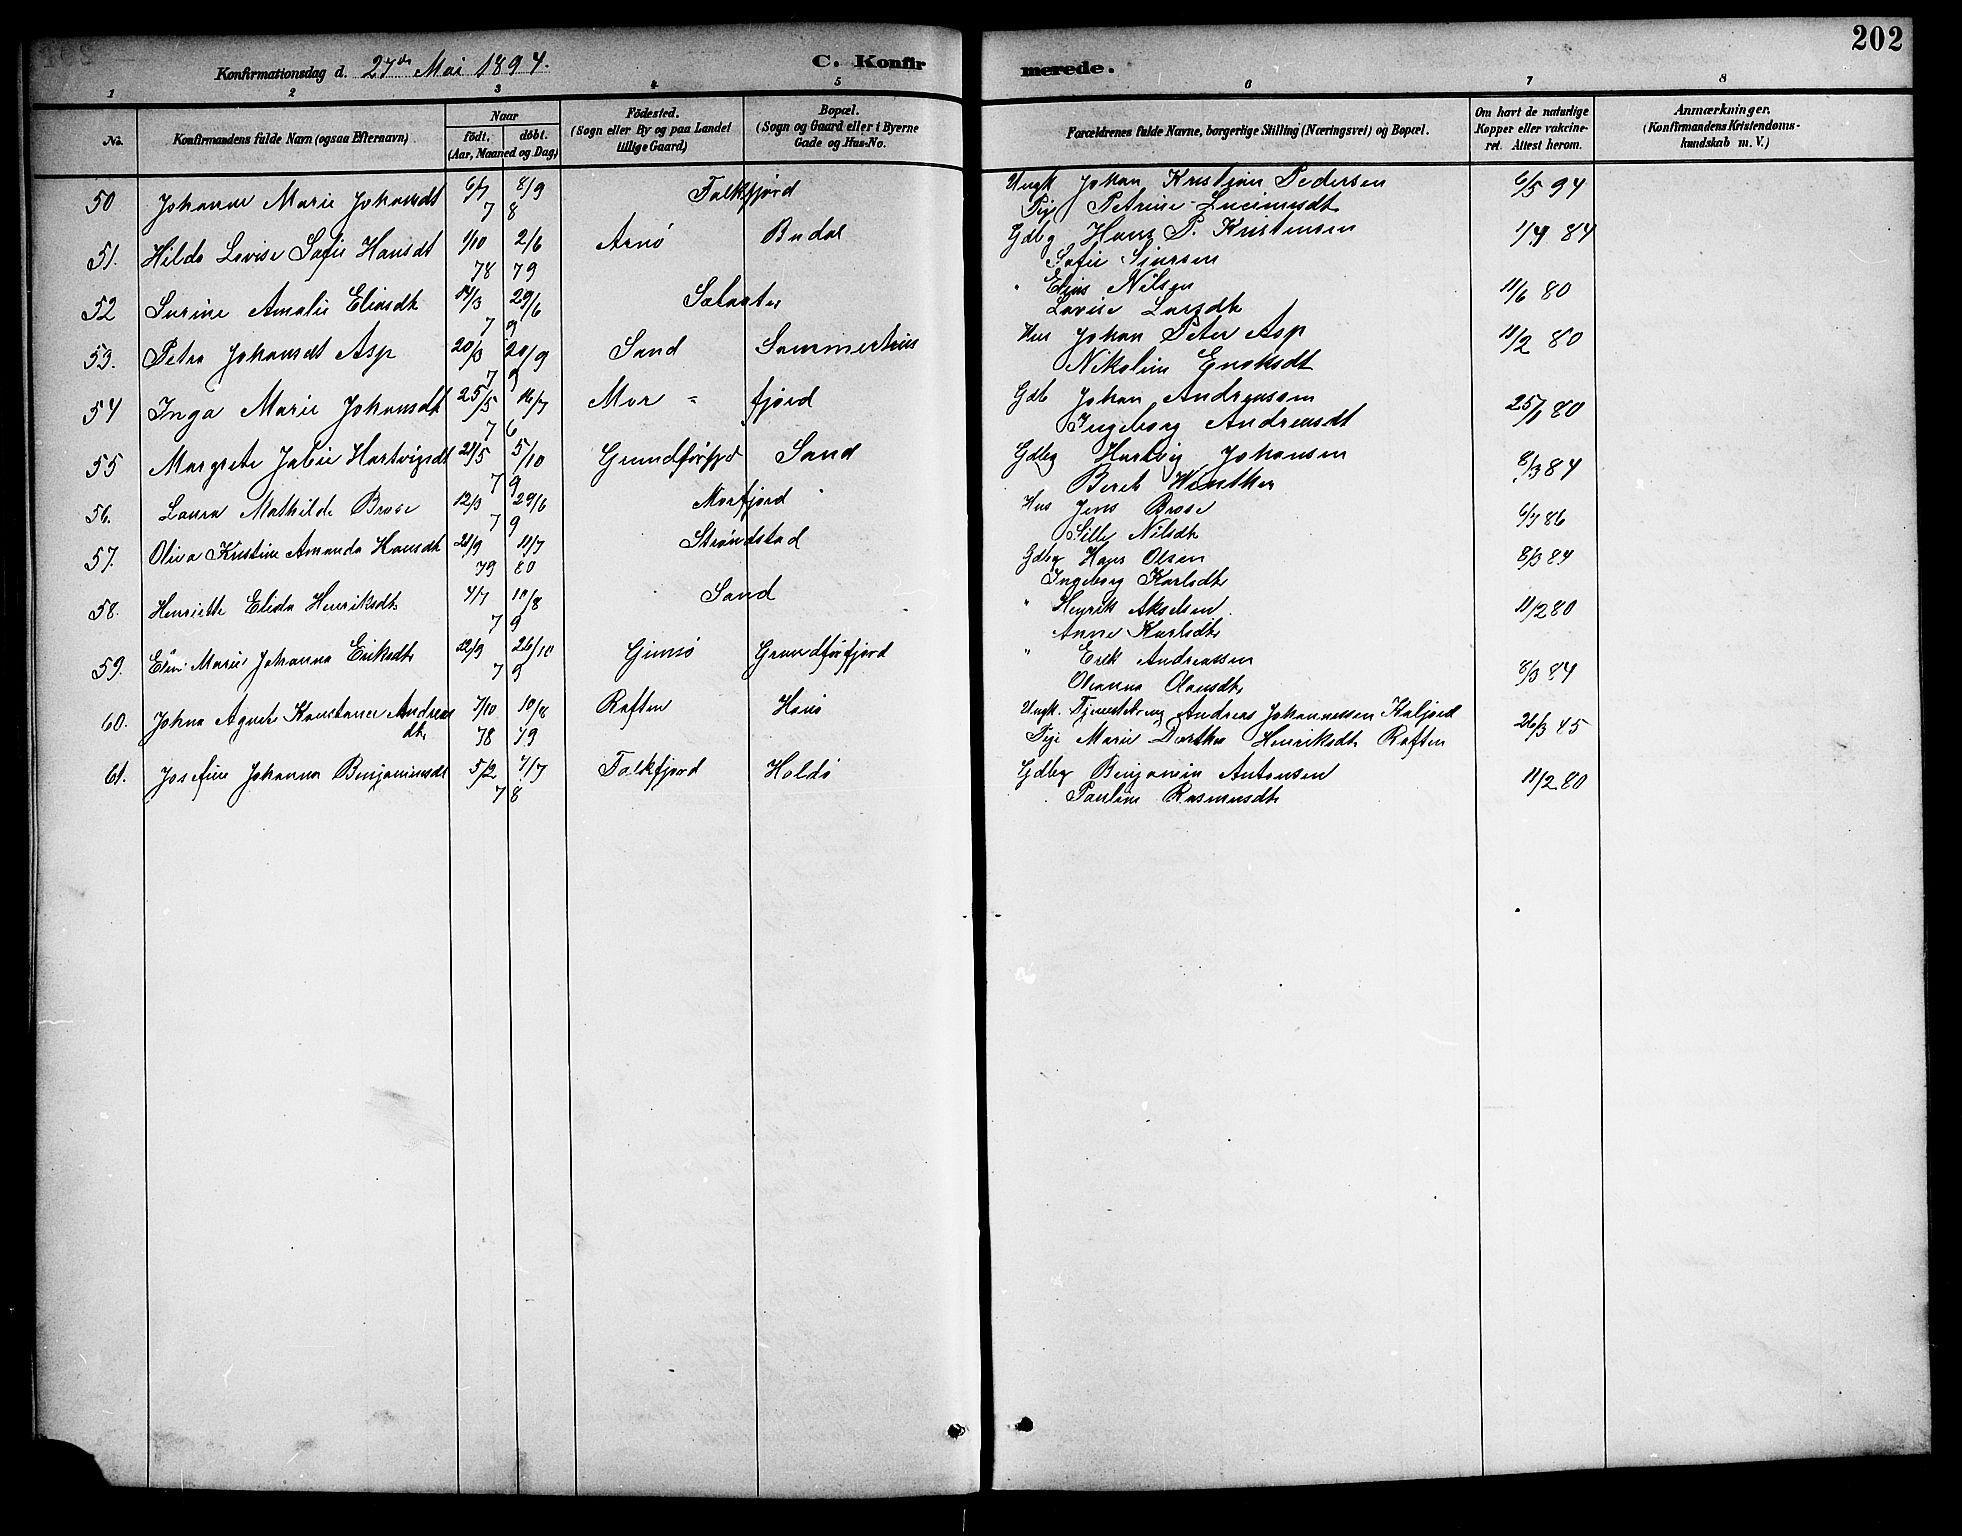 202
Konfirmationsdag d. 27de Mai 1894.
C. Konfirmerede.
1 2 3 4 5 6 7 8
No.
Konfirmandens fulde Navn (ogsaa Efternavn).
Naar
födt. döbt.
(Aar, Maaned og Dag)
Födested.
(Sogn eller By og paa Landet
tillige Gaard)
Bopæl.
(Sogn og Gaard eller i Byerne
Gade og Hus-No.
Forældrenes fulde Navne, borgerlige Stilling (Næringsvei) og Bopæl.
Om havt de naturlige
Kopper eller vakcine-
ret. Attest herom.
Anmærkninger.
(Konfirmandens Kristendoms-
kundskab m. V.)
50 Johanne Marie Johansdt 6/7 8/9 Falkfjord Ungk Johan Kristian Pedersen 6/5 94
7 8 Pige Petrine
51. Hilda Lovise Sofie Hansdt 1/10 2/6 Arnö Budal Gdbg Hans P. Kristensen 84
78 79 Sofie Siversen
52 Surine Amalie Eliasdt 29/6 " Elias Nilsen 11/6 80
7 9 Lovise Larsdt
53. Petra Johansdt Asp 20/3 20/9 Sand Hus Johan Peter Asp 11/2 80
7 9 Nikoline Enoksdt
54 Inga Marie Johansdt 25/5 16/7 Mor = fjord Gdb Johan Andreassen 80
7 6 Ingeborg Andreasdt
55 Margrete Julie Hartvigsdt 21/5 5/10 Grundførfjd Sand Gdbg Hartvig Johansen 8/3 84
7 9 Beret Winther
56. Laura Mathilde Brose 12/3 29/6 Morfjord Hus Jens Brose 6/7 86
7 9 Sille Nilsdt
57. Oliva Kristine Amanda Hansdt 21/9 11/7 Strøndstad Gdbg Hans Olsen 8/3 84
79 80 Ingeborg Karlsdt
58. Henriette Elida Henriksdt 4/7 10/8 Sand " Henrik Akselsen 11/2 80
7 9 Anne Karlsdt
59. Marie Johanna Eriksdt 12/9 26/10 Gimsö Grundførfjord " Erik Andreassen 8/3 84
7 9 Oleanna Olausdt
60. Johna Agnete Konstance Andreas 7/10 10/8 Raften Hanö Ungk. Andreas Johannessen Kaljord 26/3 45
dt. 78 79 Pige Marie Dorthea Henriksdt Raften
61. Josefine Johanna Benjaminsdt 5/2 7/7 Falkfjord Holdö Gdbg Benjamin Antonsen 11/2 80
7 8 Pauline Rasmusdt